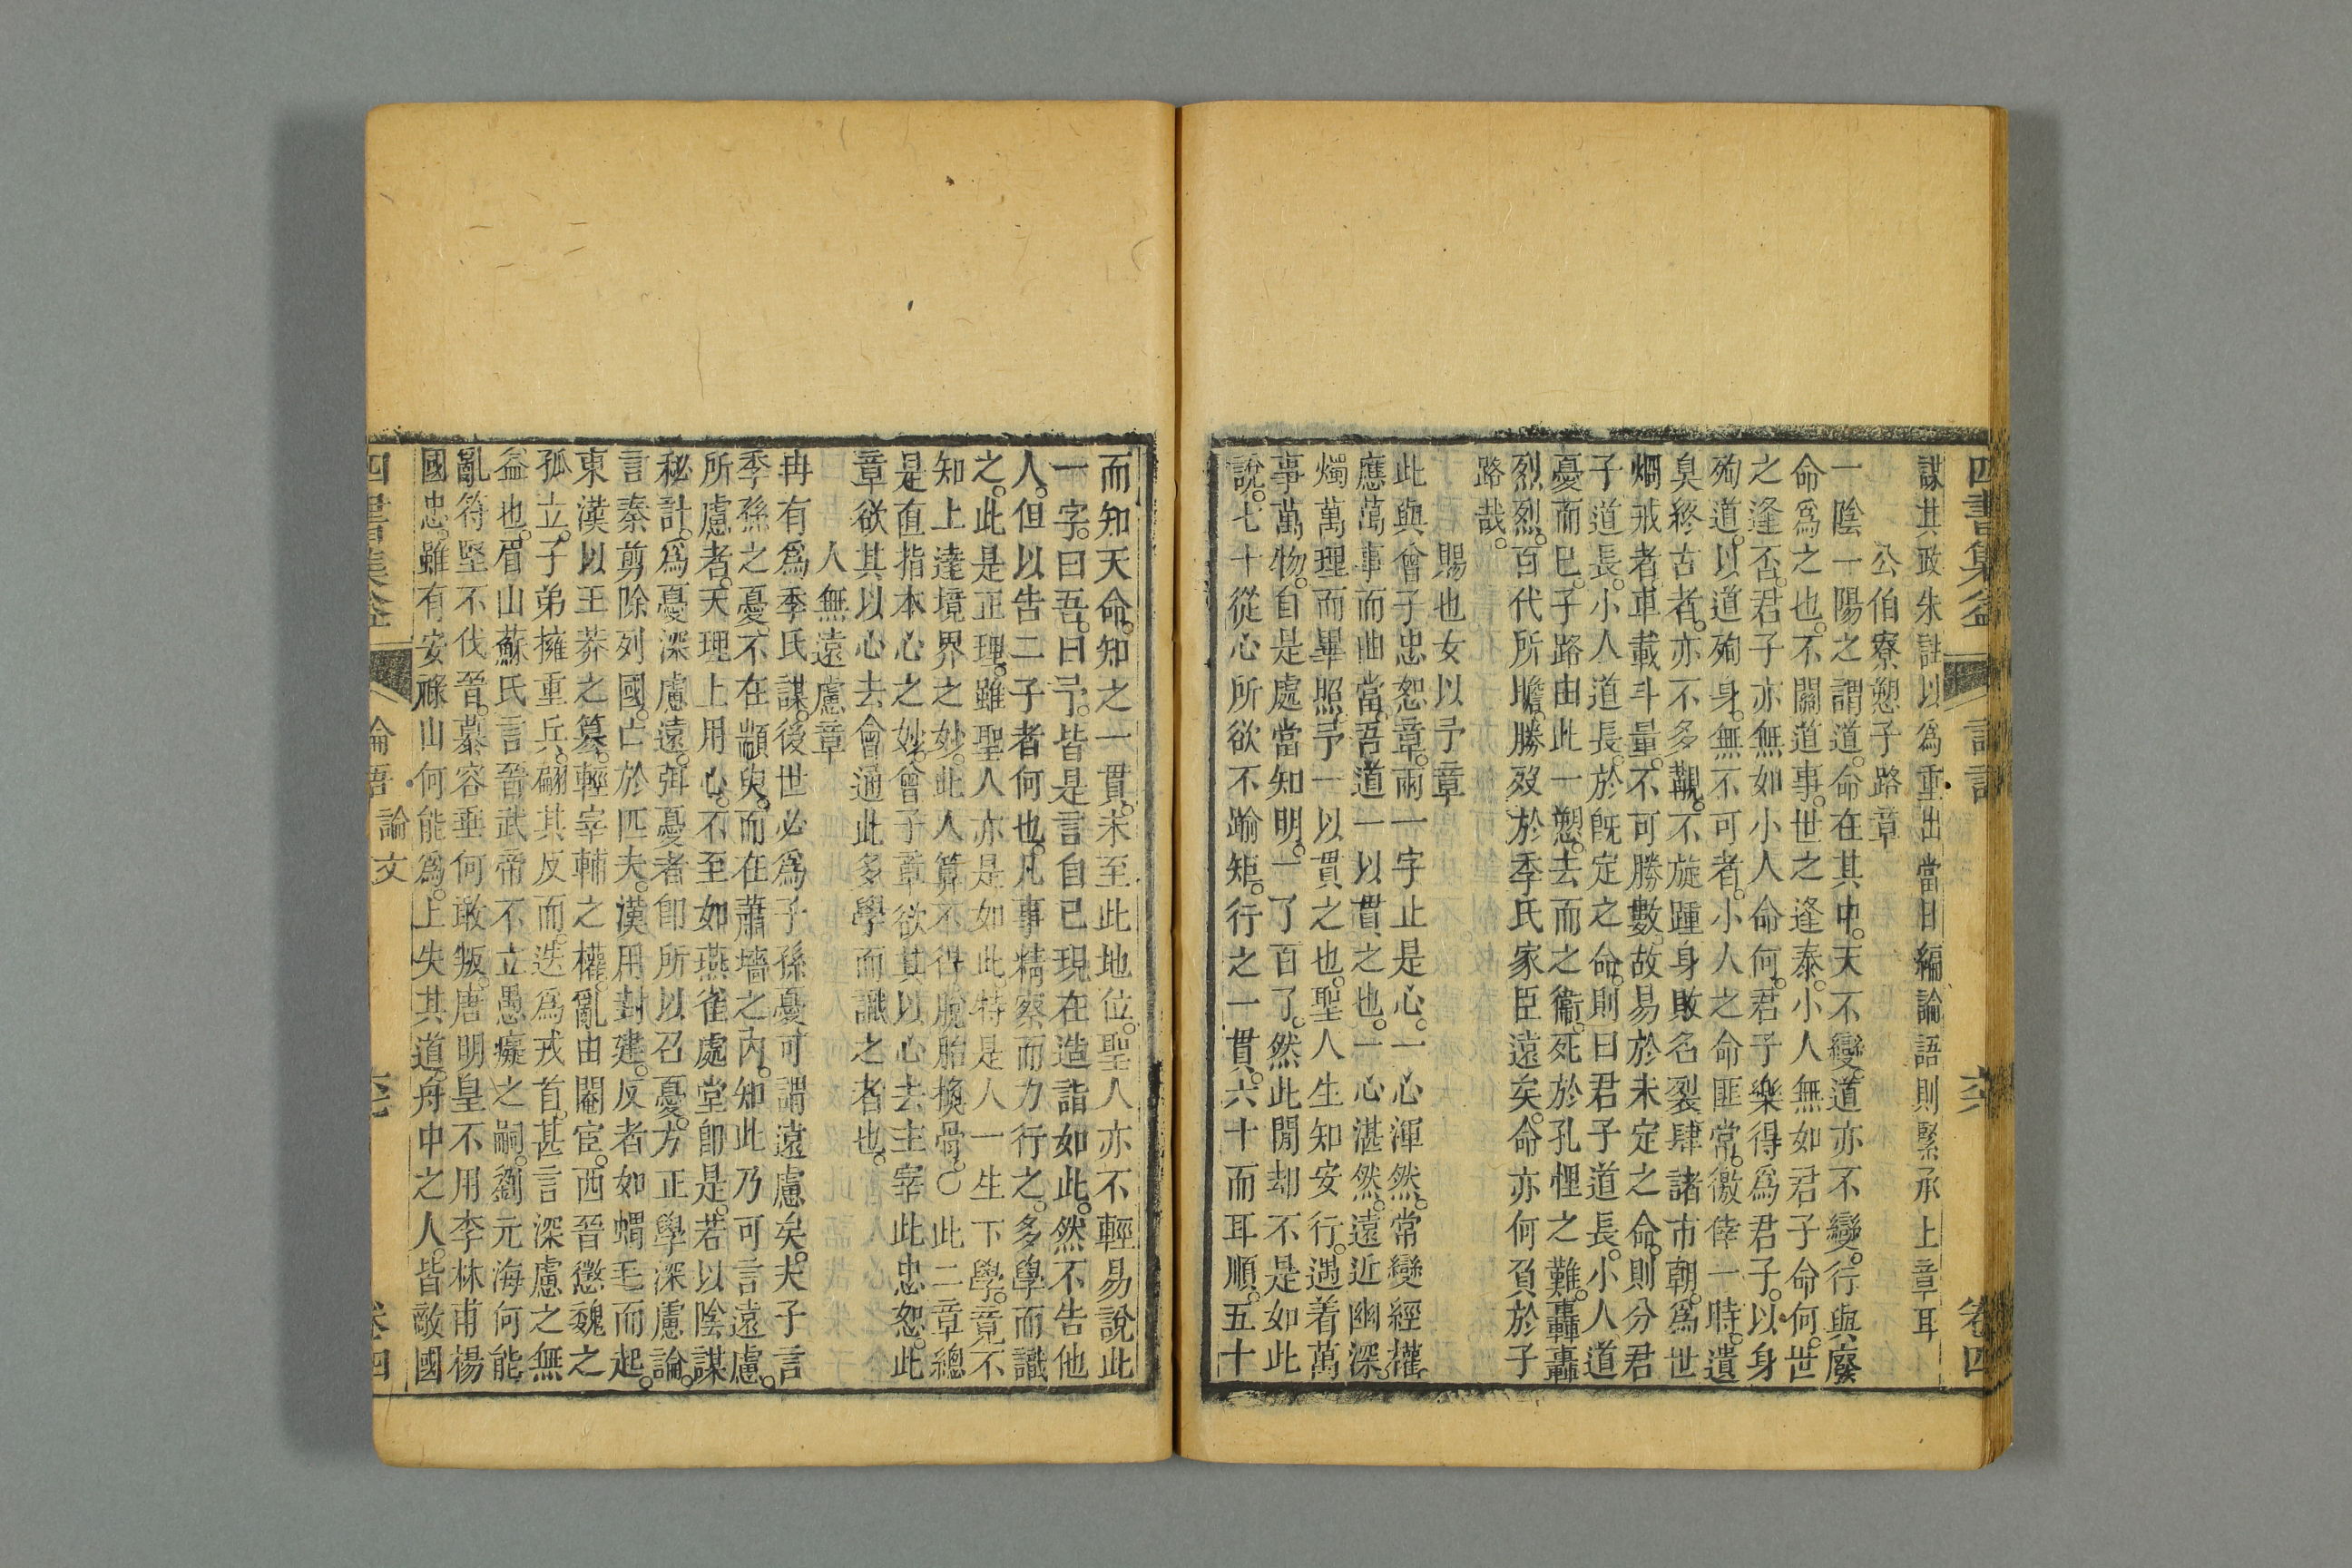 四書集益
卷四
謀其政朱註以為重出當日編論語則緊承上章耳
公伯寮愬子路章
一陰一陽之謂道。命在其中。天不變。道亦不變。行與廢
命為之也。不關道事。世之逢泰。小人無如君子命何。世
之逢否。君子亦無如小人命何。君子樂得為君子。以身
殉道。以道殉身。無不可者。小人之命匪常。徼倖一時。遺
臭終古者。亦不多覯。不旋踵身敗名裂肆諸市朝。為世
烱戒者車載斗量。不可勝數。故易於未定之命。則分君
子道長。小人道長。於旣定之命。則曰君子道長。小人道
憂而已。子路由此一愬。去而之衞。死於孔悝之難。轟轟
烈烈。百代所瞻。勝效於季氏家臣遠矣。命亦何負於子
路哉。
賜也女以予章
此與曾子忠恕章。兩一字止是心。一心渾然。常變經權。
應萬事而曲當。吾道一以貫之也。一心湛然。遠近幽深。
燭萬理而畢照。予一以貫之也。聖人生知安行。遇着萬
事萬物。自是處當知明。一了百了。然此閒却不是如此
說。七十從心所欲不踰矩。行之一貫。六十而耳順。五十
而知天命。知之一貫。未至此地位。聖人亦不輕易說此
一字。曰吾。曰予。皆是言自已現在造詣如此。然不告他
人。但以告二子者何也。凡事精察而力行之。多學而識
之。此是正理。雖聖人亦是如此。特是人一生下學。竟不
知上達境界之妙。此人算不得脫胎換骨。○此二章總
是直指本心之妙。曾子章欲其以心去主宰此忠恕。此
章欲其以心去會通此多學而識之者也。
人無遠慮章
冉有為季氏謀。後世必為子孫憂可謂遠慮矣。夫子言
季孫之憂。不在顓臾。而在蕭墻之內。知此乃可言遠慮。
所慮者。天理上用心。不至如燕雀處堂卽是。若以陰謀
秘計。為憂深慮遠。弭憂者卽所以召憂。方正學深慮論。
言秦剪除列國。亡於匹夫。漢用封建。反者如蝟毛而起。
東漢以王莽之篡。輕宰輔之權。亂由閹宦。西晉懲魏之
孤立。子弟擁重兵。翩其反而。迭為戎首。甚言深慮之無
益也。眉山蘇氏言晉武帝不立愚癡之嗣。劉元海何能
亂。符堅不伐晉。慕容垂何敢叛。唐明皇不用李林甫楊
國忠。雖有安祿山何能為。上失其道。舟中之人。皆敵國
四書集益
論語 論文
卷四